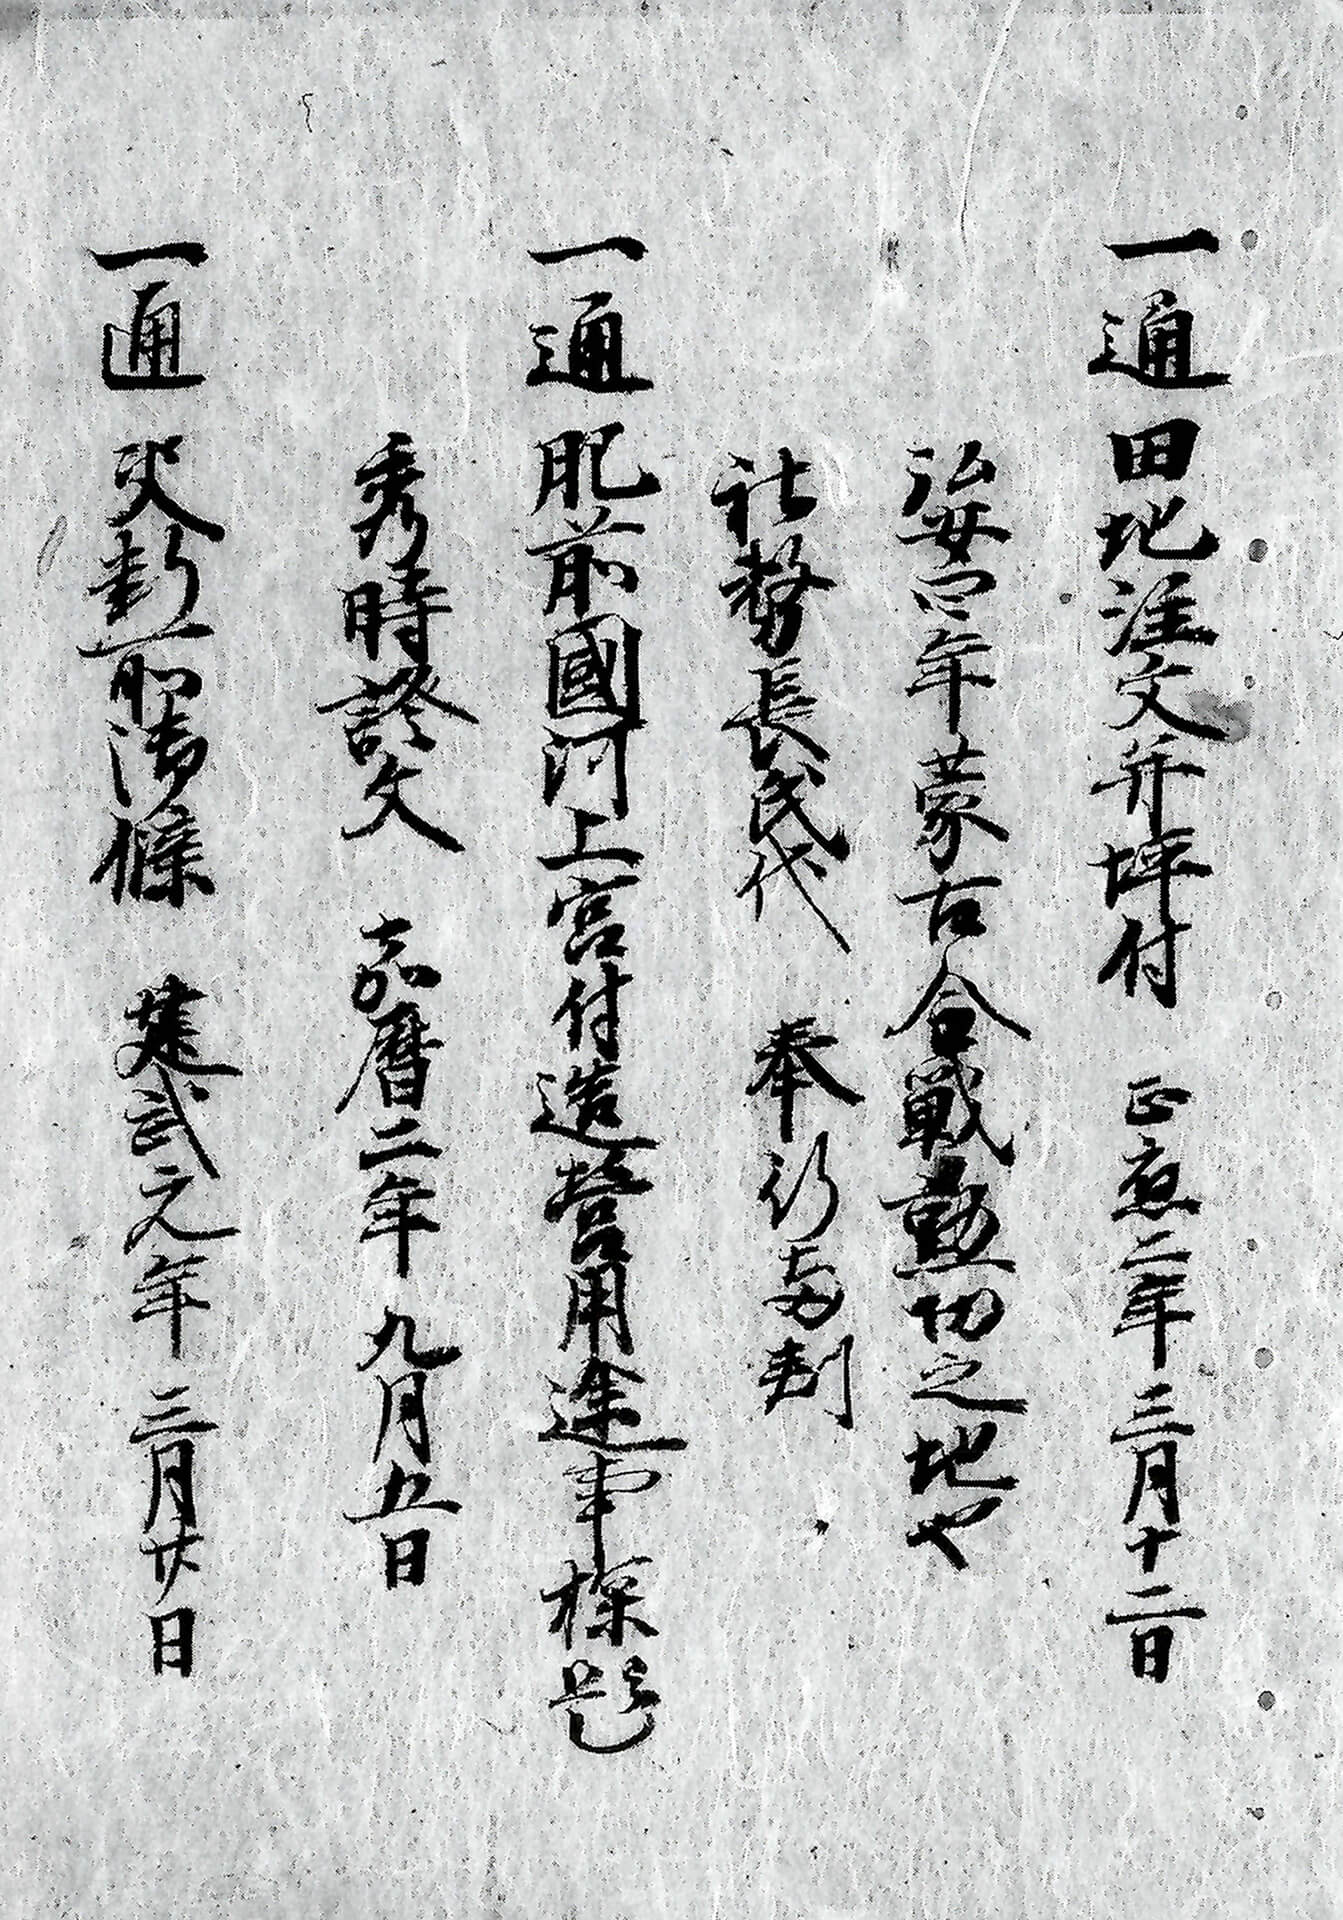 一通田地注文并坪付 正應二年三月十二日
弘安四年蒙古合戦勲功之地也
社務長民代 奉行有判
一通肥前國河上宮付造営用途事探題
秀時證文 嘉暦二年九月五日
一通 條 建武元年三月廿日